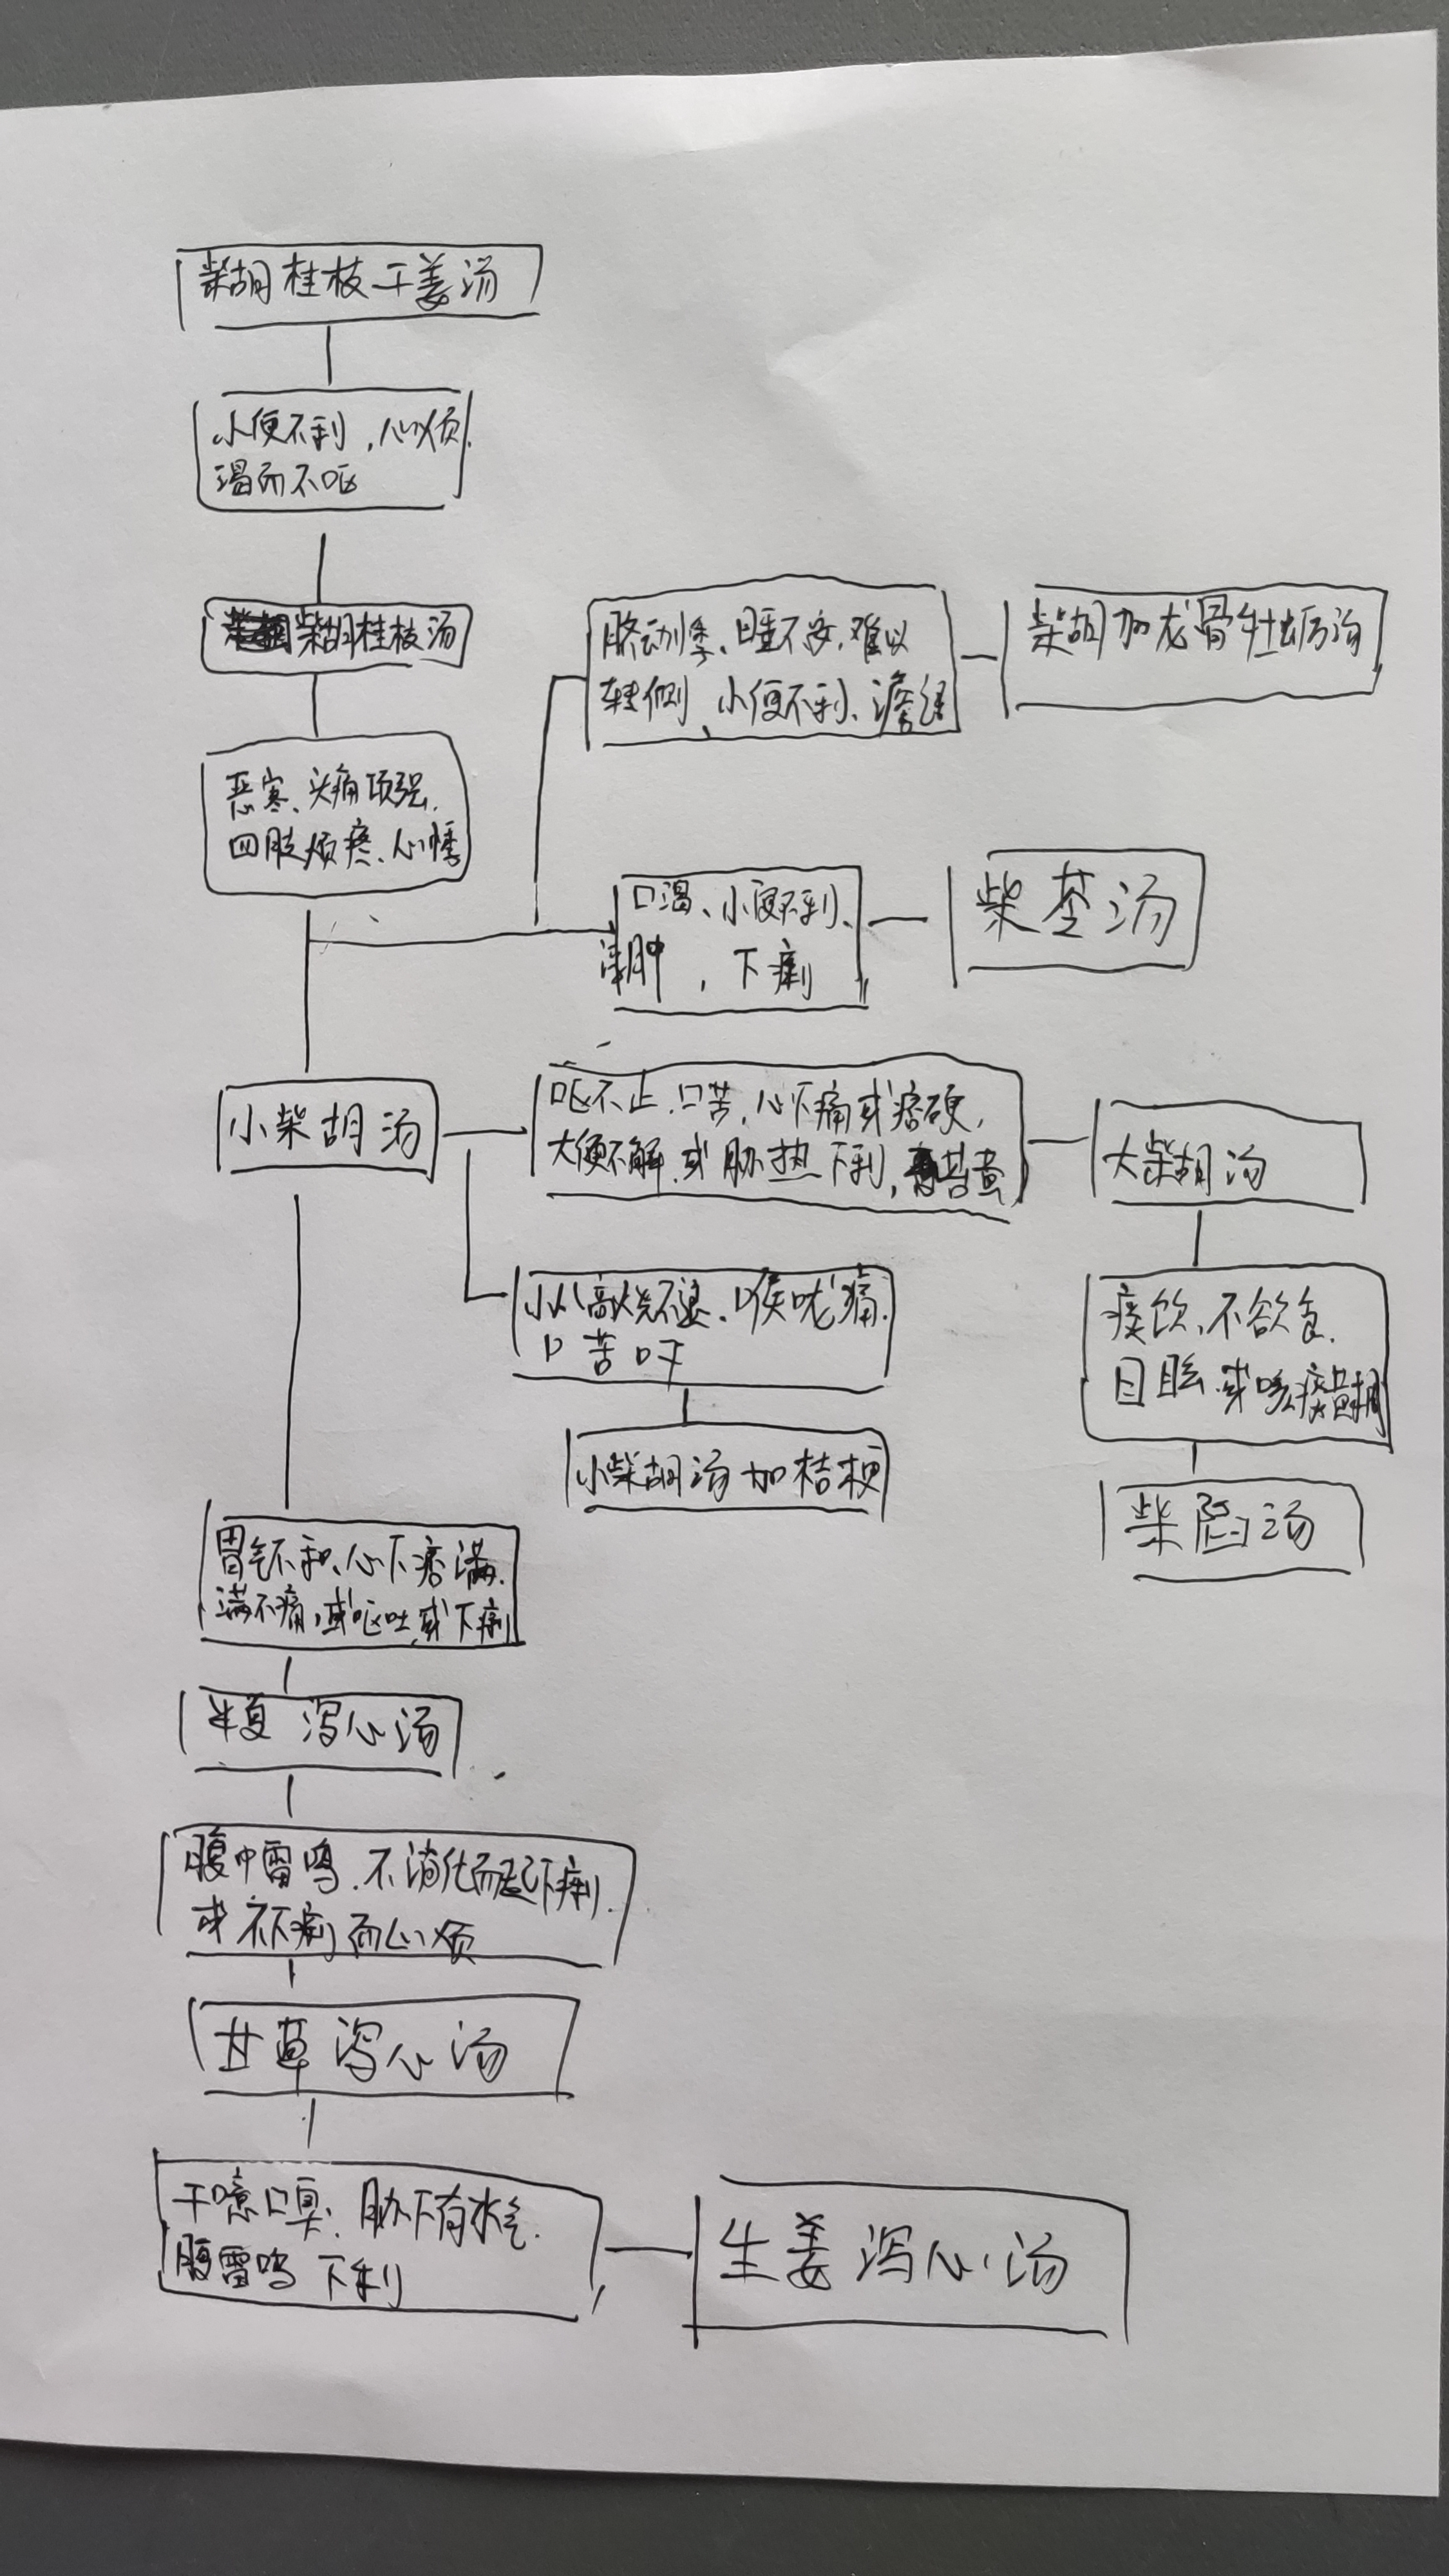 柴胡桂枝干姜汤
小便不利,心烦.
渴而不呕
柴胡桂枝汤
恶寒、头痛项强.
四肢烦疼、心悸
脐动悸、睡不安.难以
转侧、小便不利、谵语
柴胡加龙骨牡蛎汤
口渴、小便不利、
肿,下痢
柴苓汤
小柴胡汤
呕不止.口苦,心下痛或痞硬,
大便不解.或胁热下利,苔黄
大柴胡汤
小儿高烧不退、喉咙痛.
口苦呕
小柴胡汤加桔梗
痰饮、不欲食.
目眩.或咳痰黄稠
柴陷汤
胃气不和、心下痞满.
满不痛,或呕吐,或下痢
半夏泻心汤
腹中雷鸣.不消化而起下痢.
或不下痢而心烦
甘草泻心汤
干噫口臭、胁下有水气.
腹雷鸣下利
生姜泻心汤